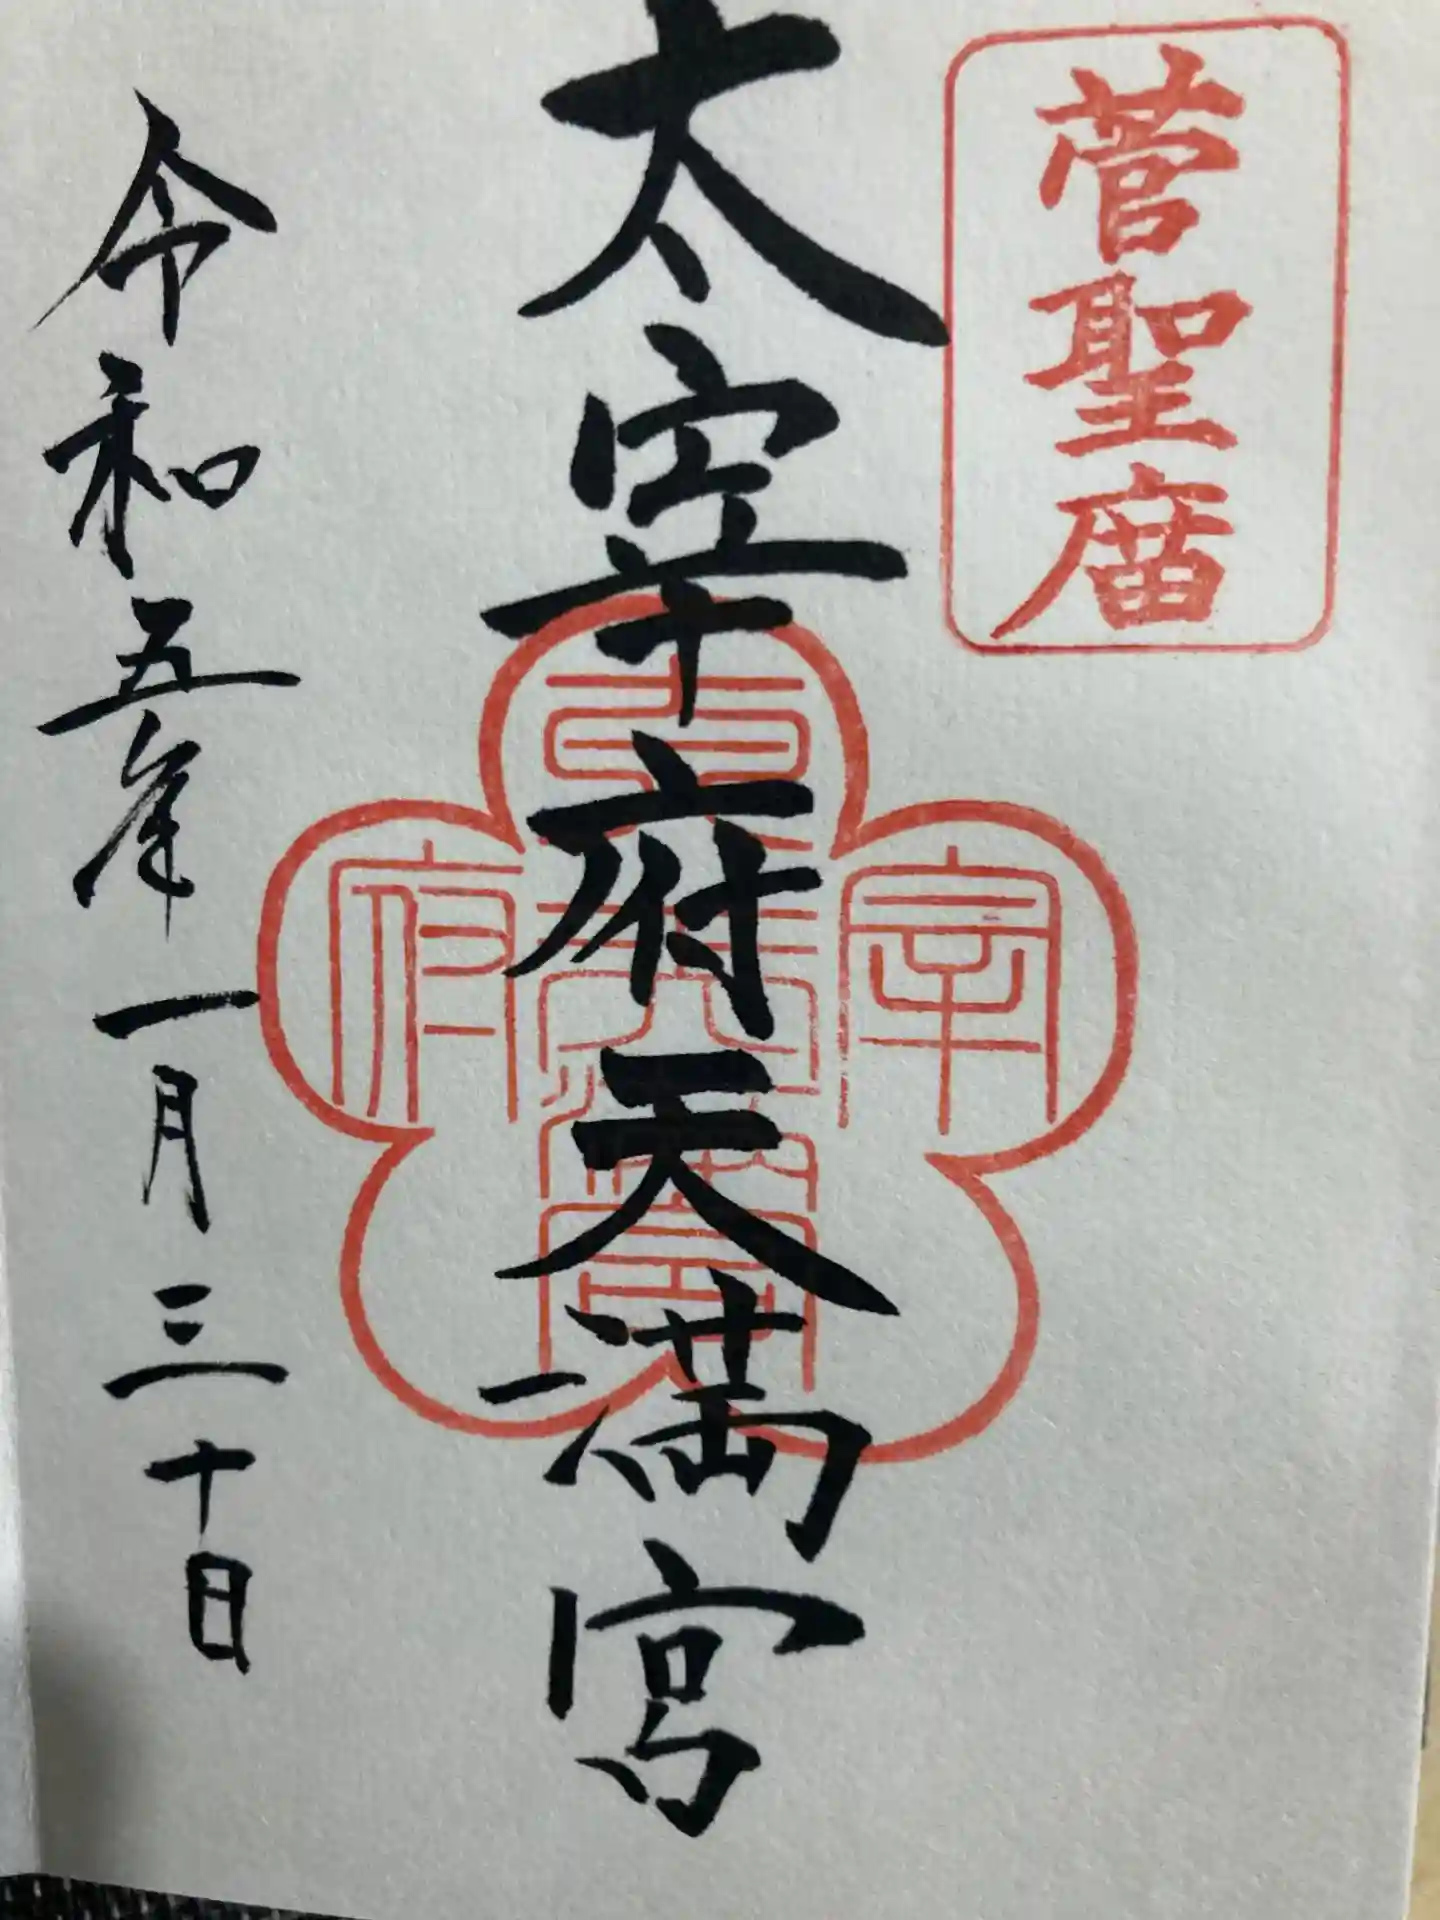 菅聖庿
太宰府天満宮
太宰府天満宮
令和五年一月三十日